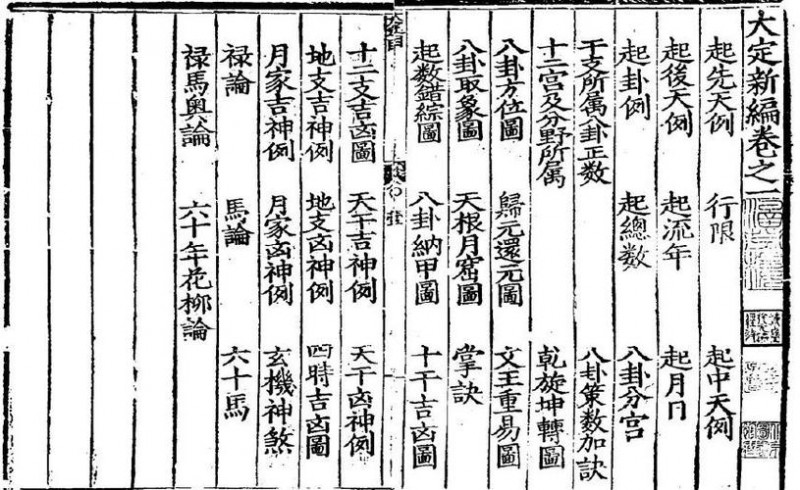 大定新編卷之一
起先天例 行限 起中天例
起後天例 起流年 起月日
起卦例 起總数 八卦分宫
干支所属八卦正数 八卦策数加訣
十二宫及分野所属 乾旋坤轉圖
八卦方位圖 歸元還元圖 文王重易圖
八卦取象圖 天根月窟圖 掌訣
起数錯綜圖 八卦納甲圖 十干吉凶圖
十二支吉凶圖 天干吉神例 天干凶神例
地支吉神例 地支凶神例 四時吉凶圖
月家吉神例 月家凶神例 玄機神煞
禄論 馬論 六十馬
禄馬奥論 六十年花柳論